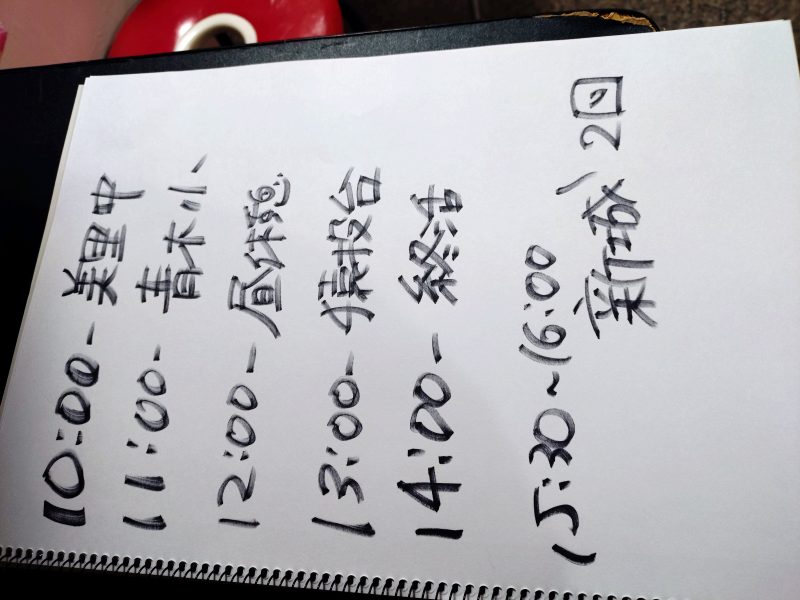 10:00- 美里中
11:00- 青木小
12:00- 昼休憩
13:00- 猿投台
14:00- 終活
15:30~16:00
新城 2回